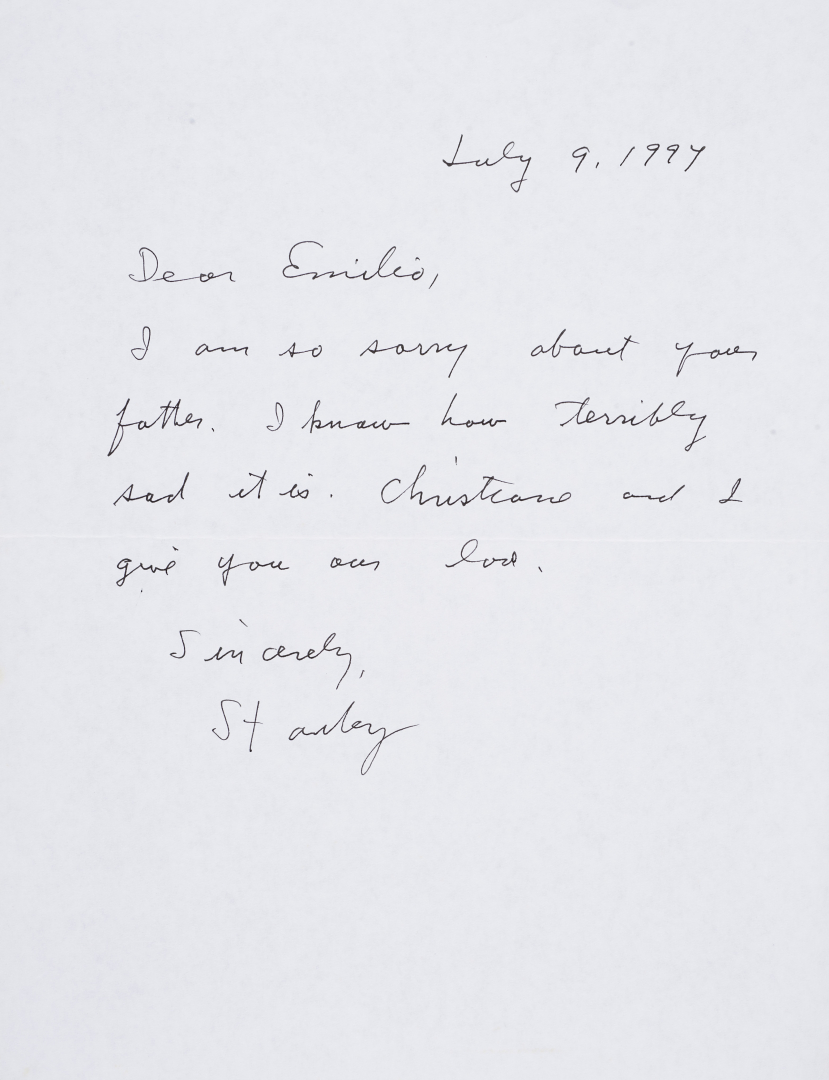 July 9, 1994
Dear Emilio,
I am so sorry about your
father. I know how terribly
sad it is. Christiane and I
give you our love.
Sincerely,
Stanley